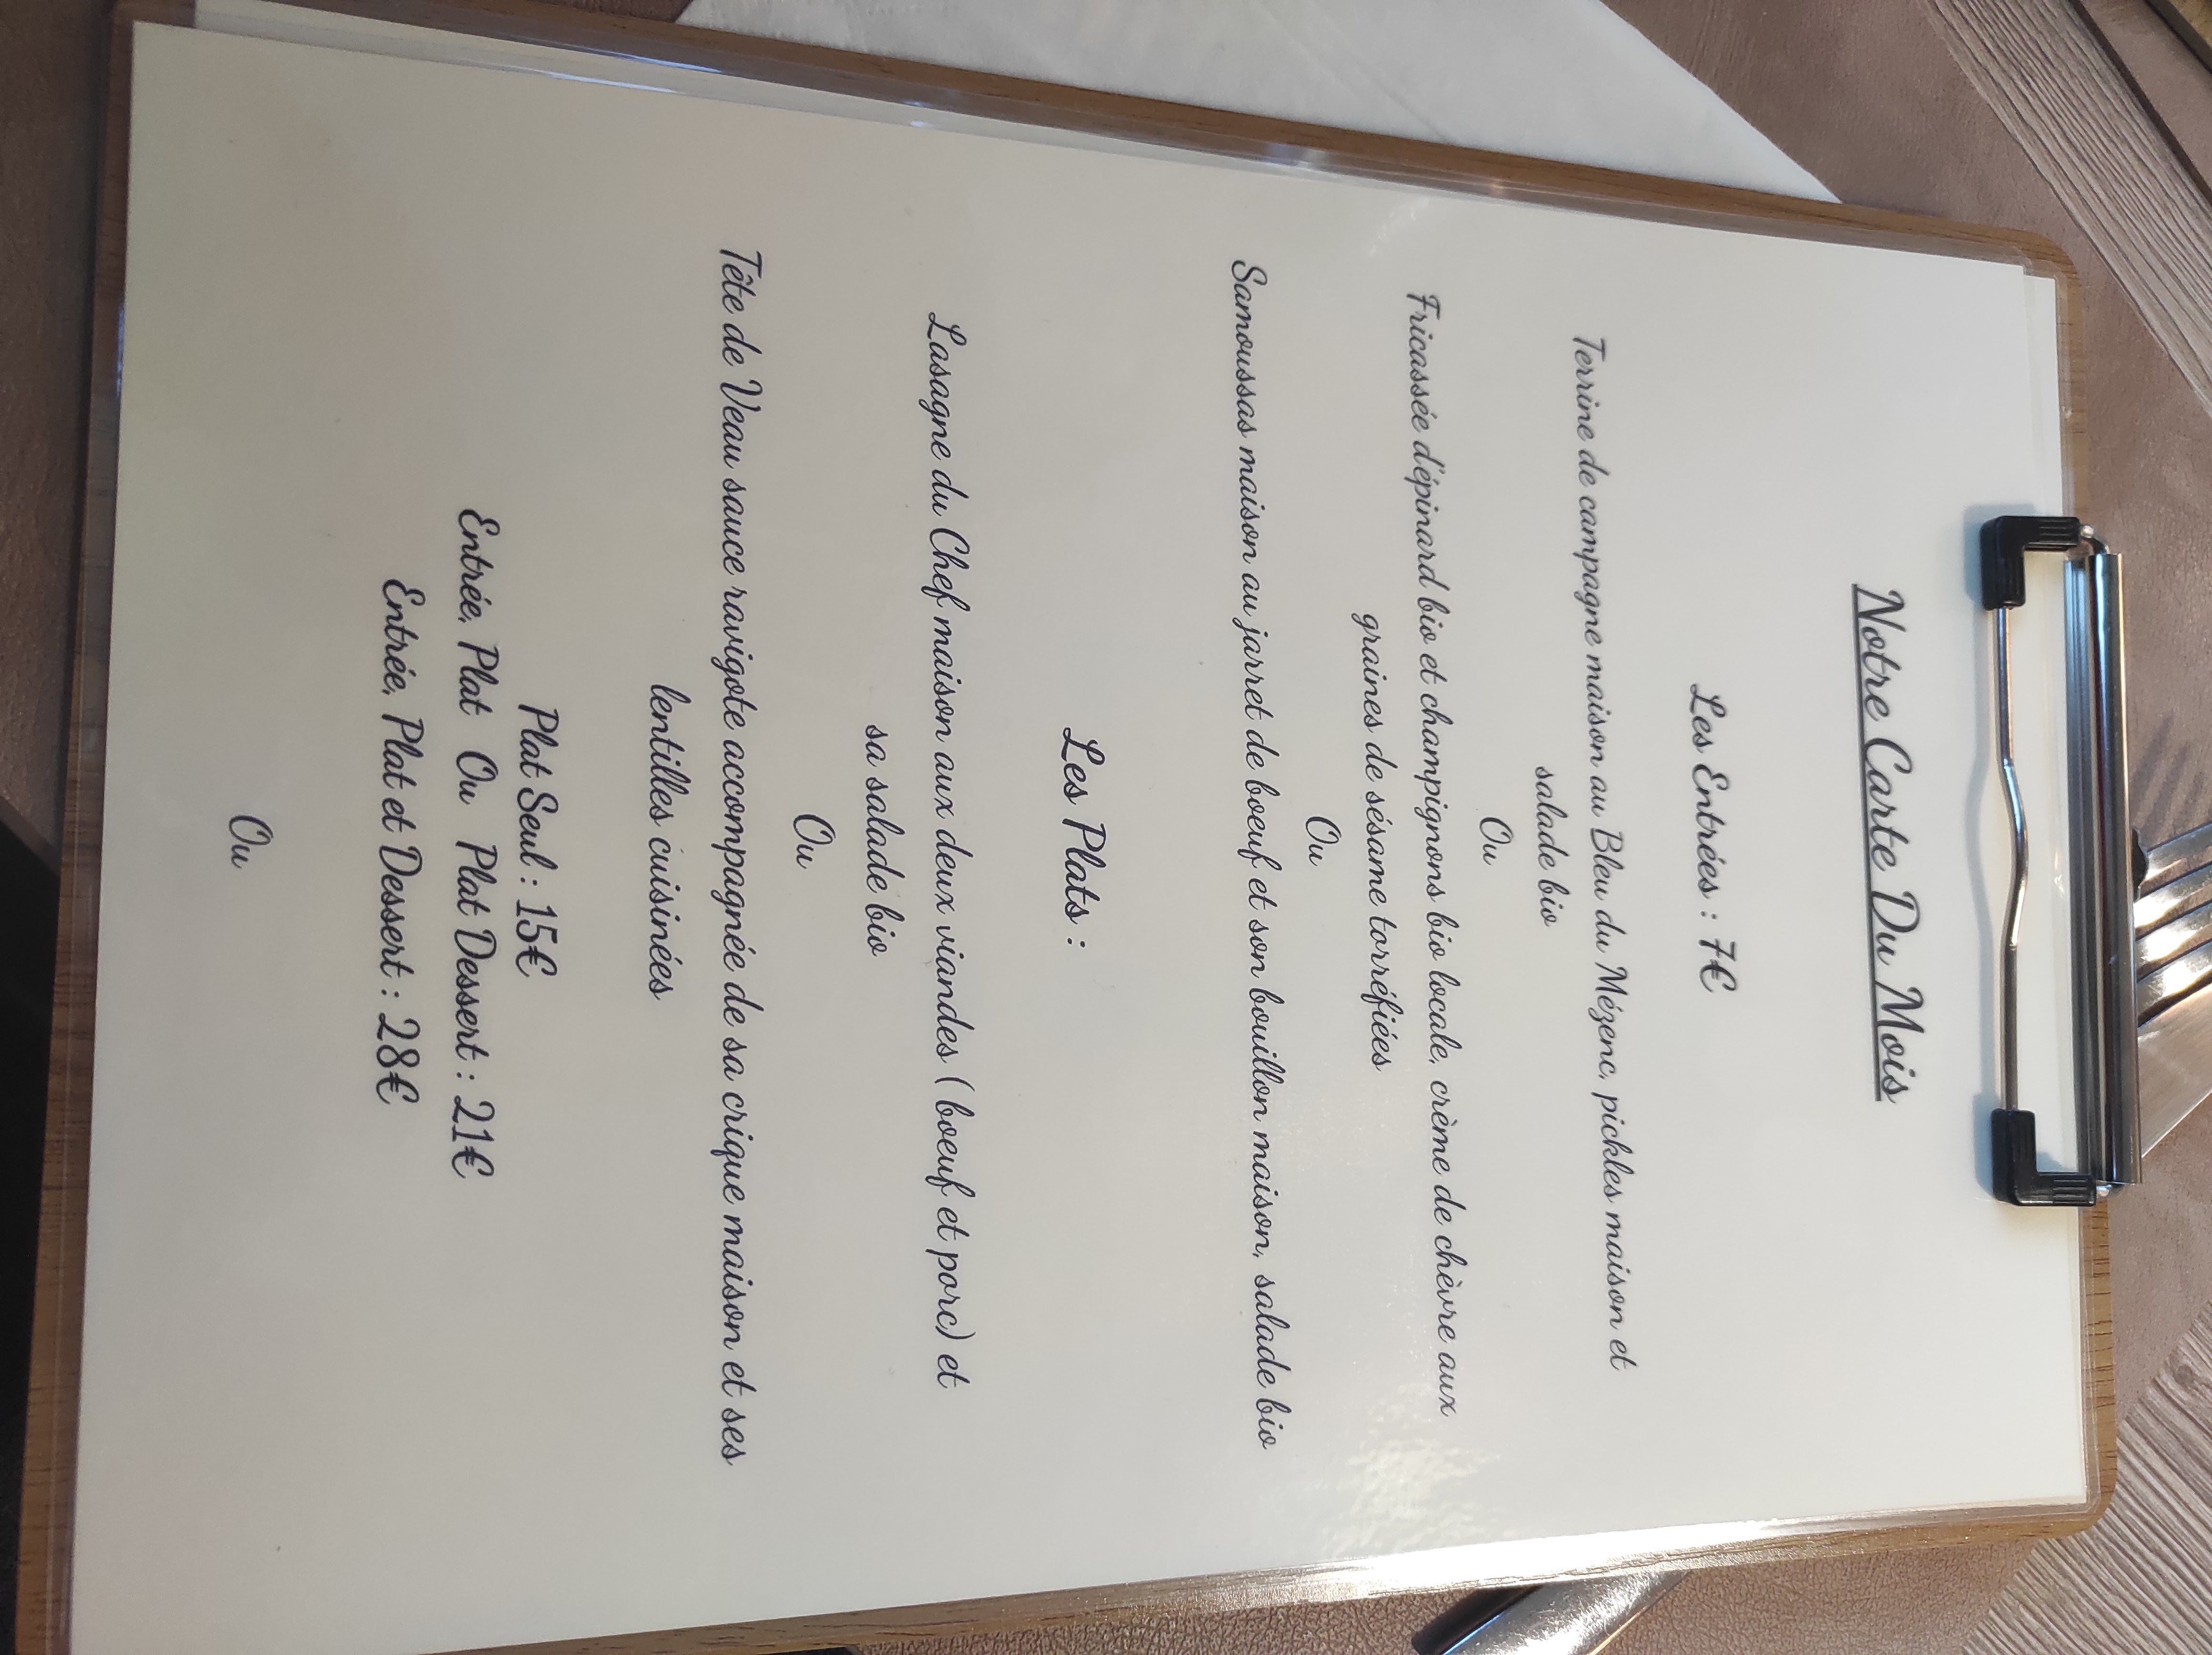 Notre Carte Du Mois
Les Entrées : 7€
Terrine de campagne maison au Bleu du Mézenc, pickles maison et
salade bio
Ou
Fricassée d'épinard bio et champignons bio locale, crème de chèvre aux
graines de sésame torréfiées
Ou
Samoussas maison au jarret de boeuf et son bouillon maison, salade bio
Les Plats :
Lasagne du Chef maison aux deux viandes ( boeuf et porc) et
sa salade bio
Ou
Tête de Veau sauce ravigote accompagnée de sa crique maison et ses
lentilles cuisinées
Plat Seul : 15€
Entrée, Plat Ou Plat Dessert : 21€
Entrée, Plat et Dessert : 28€
Ou